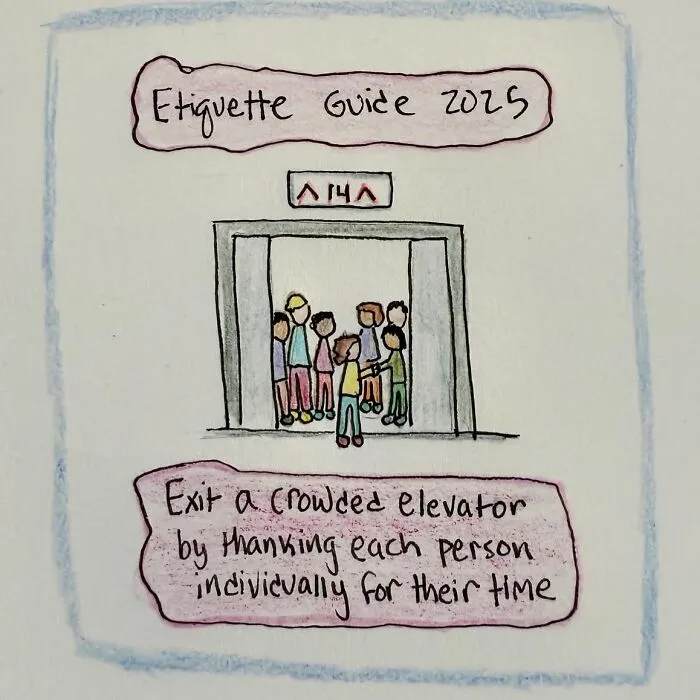 Etiquette Guide 2025
^ 14 ^
Exit a crowded elevator
by thanking each person
individually for their time